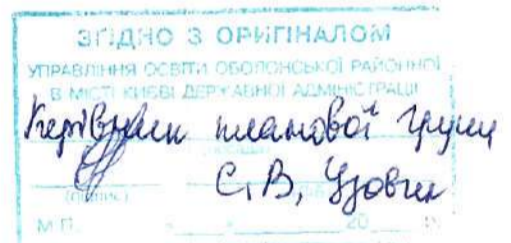 ЗГІДНО З ОРИГІНАЛОМ
УПРАВЛІННЯ ОСВІТИ ОБОЛОНСЬКОЇ РАЙОННОЇ
В МІСТІ КИЄВІ ДЕРЖАВНОЇ АДМІНІСТРАЦІЇ
Керівник планової групи
(підпис)
С.В.
М.П. 20 р.